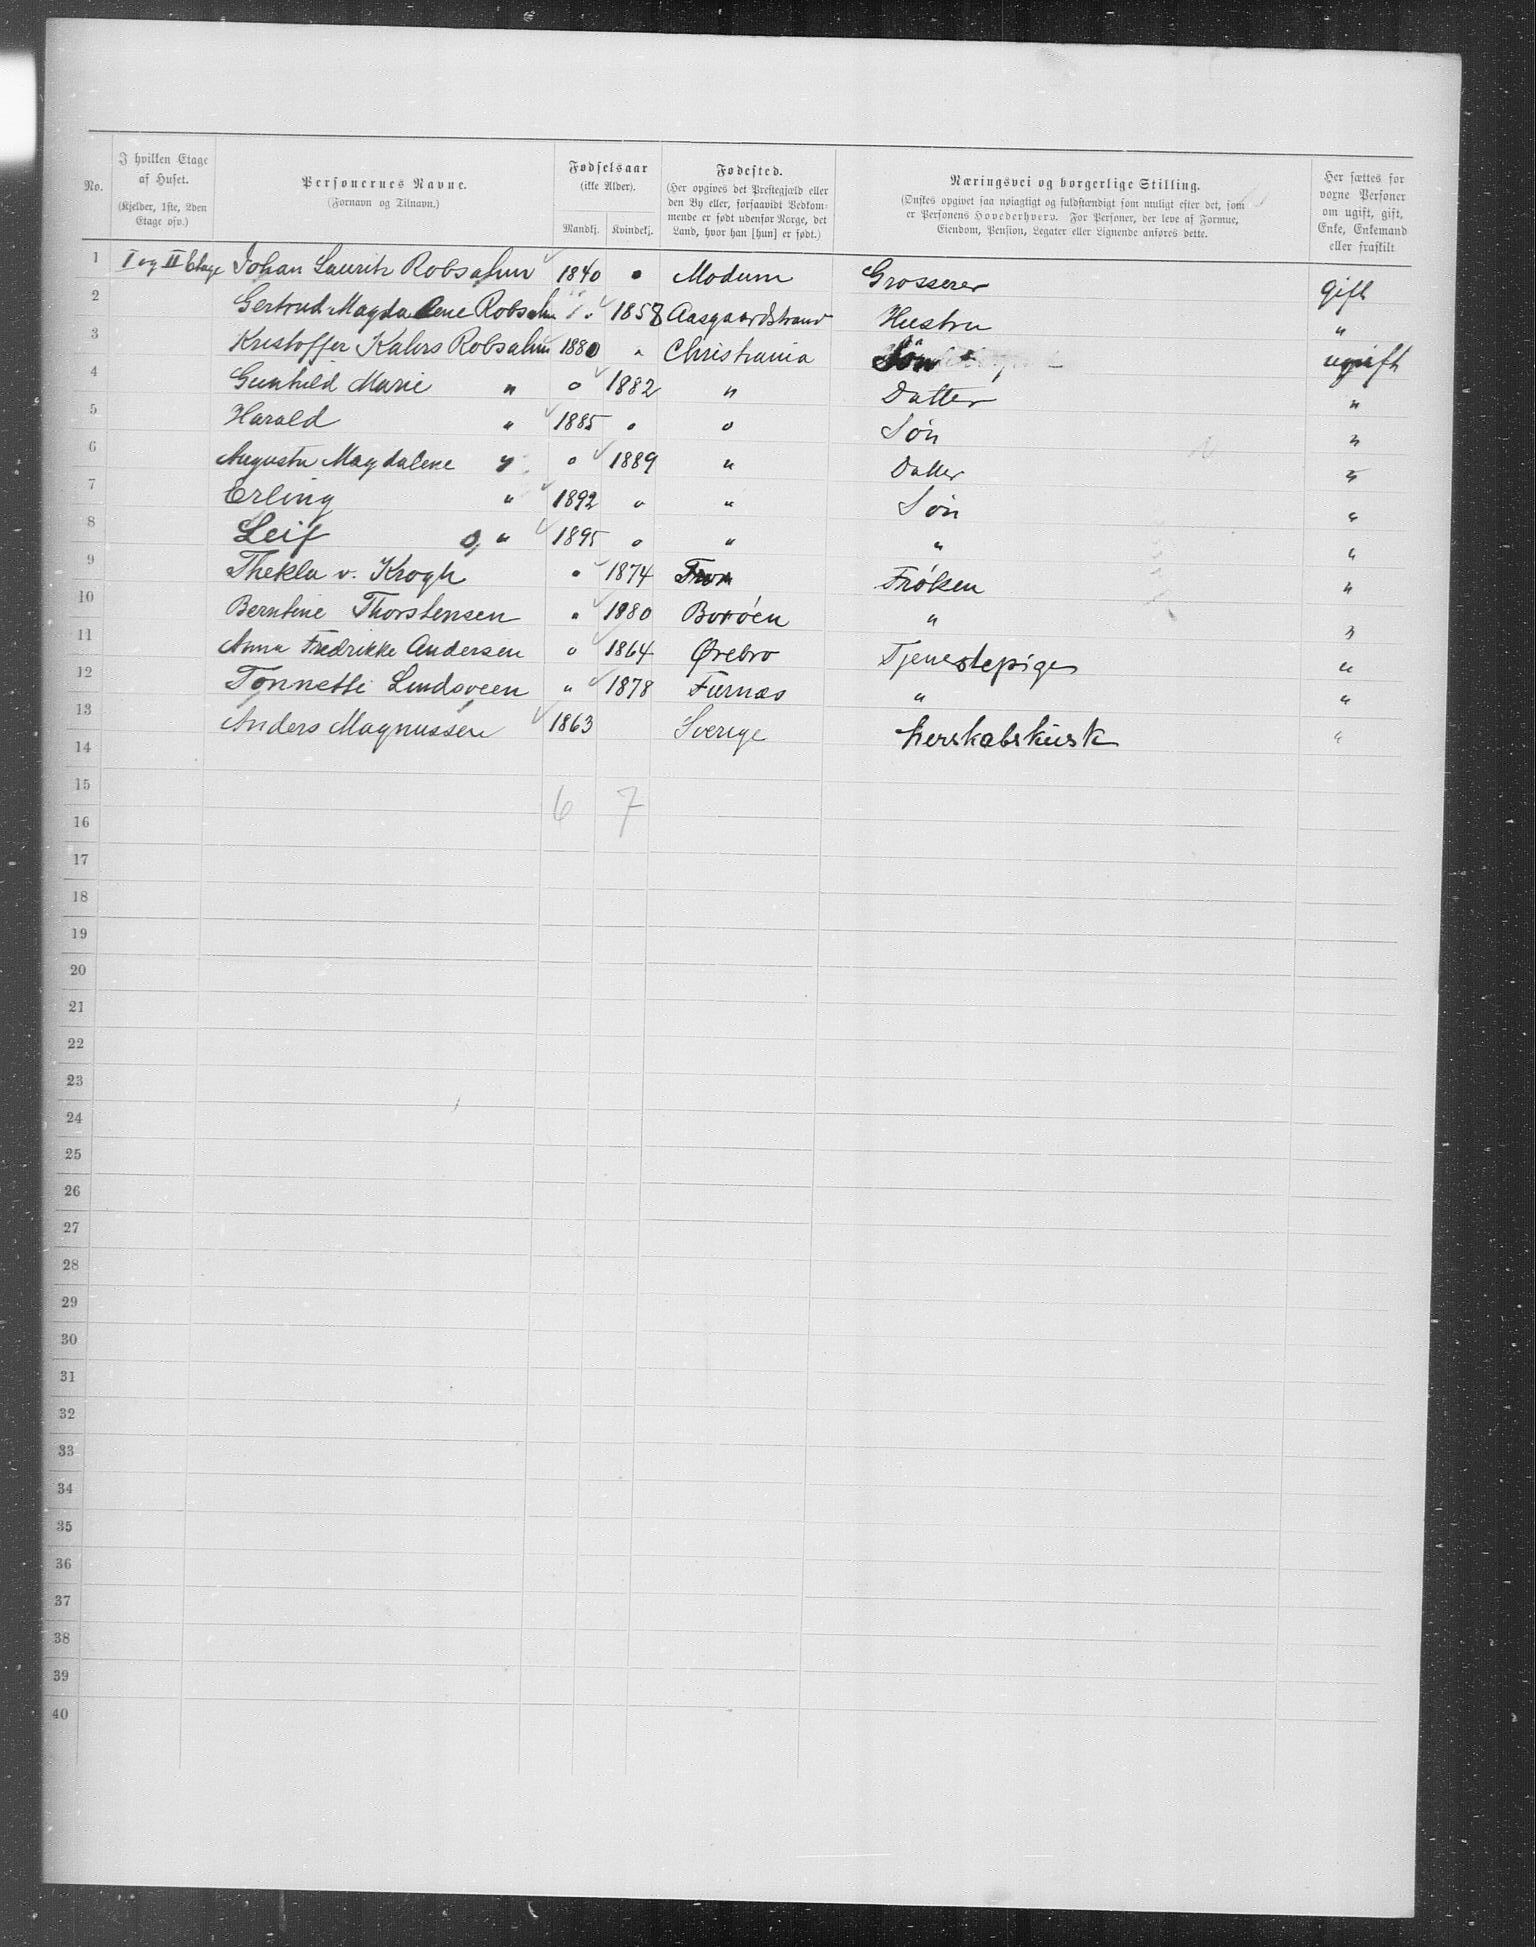 No. | I hvilken Etage af Huset. (Kjelder, 1ste, 2den Etage osv.) | Personernes Navne. (Fornavn og Tilnavn.) | Fødselsaar (ikke Alder). Mandkj. | Kvindekj. | Fødested. (Her opgives det Prestegjæld eller den By eller, forsaavidt Vedkommende er født udenfor Norge, det Land, hvor han [hun] er født.) | Næringsvei og borgerlige Stilling. (Ønskes opgivet saa nøiagtigt og fuldstændigt som muligt efter det, som er Personens Hovederhverv. For Personer, der leve af Formue, Eiendom, Pension, Legater eller Lignende anføres dette. | Her sættes for voxne Personer om ugift, gift, Enke, Enkemand eller fraskilt
1 I og II Etage Johan Lauritz Robsahm 1840 " Modum Grosserer gift
2 Gertrud Magdalene Robsahm " 1858 Aasgaardstrand Hustru "
3 Kristoffer Kahrs Robsahm 1880 " Christiania Søn ugift
4 Gunhild Marie " " 1882 " Datter "
5 Harald " 1885 " " Søn "
6 Augusta Magdalene " " 1889 " Datter "
7 Erling " 1892 " " Søn "
8 Leif " 1895 " " " "
9 Thekla v. Krogh " 1874 Fron Frøken "
10 Berntine Thorstensen " 1880 Borøen " "
11 Anna Fredrikke Andersen " 1864 Ørebro Tjenestepige "
12 Tonnette Lindsveen " 1878 Furnæs " "
13 Anders Magnussen 1863 Sverige herskabskusk "
14
15
6 7
16
17
18
19
20
21
22
23
24
25
26
27
28
29
30
31
32
33
34
35
36
37
38
39
40